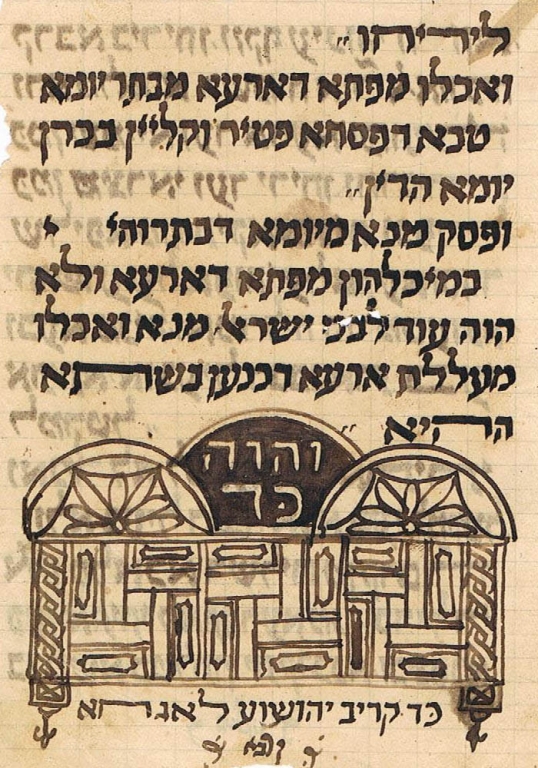 ליריחו״
ואכלו מפתא דארעא מבתר יומא
טבא דפסחא פטיר וקליין בכרן
יומא הדין״
ופסק מנא מיומא דבתרוהי י
במיכלהון מפתא דארעא ולא
הוה עוד לבני ישראל מנא ואכלו
מעללת ארעא דכנען בשתא
ההיא״
והוה
כד
כד קריב יהושוע לאגחא